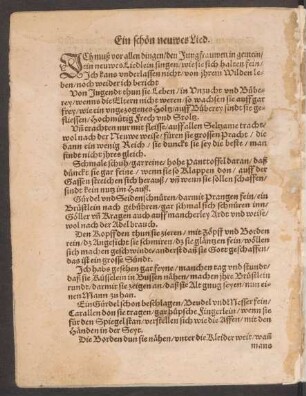 Ein schön neuwes Lied.
ICh muß vor allen dingen / den Jungfrauwen in gemein /
ein neuwes Liedlein singen / wie sie sich halten fein /
Ich kans vnderlassen nicht / von jhrem Wilden le-
ben / noch weider ich bericht
Von Jugendt thun sie Leben / in Vnzucht vnd Bübe-
rey / wans die Eltern nicht weren / so wachsen sie auff gar
frey / wie ein vngezognes Holtz / auff Büberey sind sie ge-
flissen / Hochmütig Frech vnd Stoltz.
Vñ trachten nur mit fleisse / auff allen Seltzame tracht /
wol nach der Neuwe weise / füren sie grossen Pracht / die
dann ein wenig Reich / sie dunckt sie sey die beste / man
findt nicht jhres gleich.
Schmale schuh / gar reine / hohe pantoffel daran / daß
dunckt sie gar feine / wenn sie so Klappen dan / auff der
Gassen streichen sich herauß / vñ wenn sie sollen schaffen /
sindt kein nutz im Hauß.
Gürdel vnd Seiden schnüren / darmit Prangen fein / ein
Brüstlein nach gebühren / gar schmal sich schnüren inn /
Göller vñ Kragen auch auff mancherley Ardt vnd weise /
wol nach der Adel brauch.
Den Kopff den thun sie zieren / mit zöpff vnd Borden
rein / dz Angesicht sie schmiren / dz sie glantzen fein / wöllen
sich machen geschwinde / anderst daß sie Gott geschaffen /
das ist ein grosse Sündt.
Ich habs gesehen gar feyne / manchen tag vnd stunde /
daß sie Küsselein in Bussen nähen / machen jhre Brüstlein
runde / darmit sie zeigen an / daß sie Alt gnug seyen / nun ei-
nen Mann zu han.
Ein Gürdel schon beschlagten / Beudel vnd Messer fein /
Corallen don sie tragen / gar hüpsche Fingerlein / wenn sie
für den Spiegel stan / verstellen sich wie die Affen / mit den
Händen in der Seyt.
Die Borden dun sie nähen / vnter die Kleider weit / wañ
mans